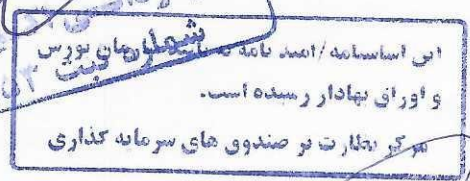 این اساسنامه/امید نامه به تایید سازمان بورس
و اوراق بهادار رسیده است.
مرکز نظارت بر صندوق های سرمایه گذاری
شماره ثبت